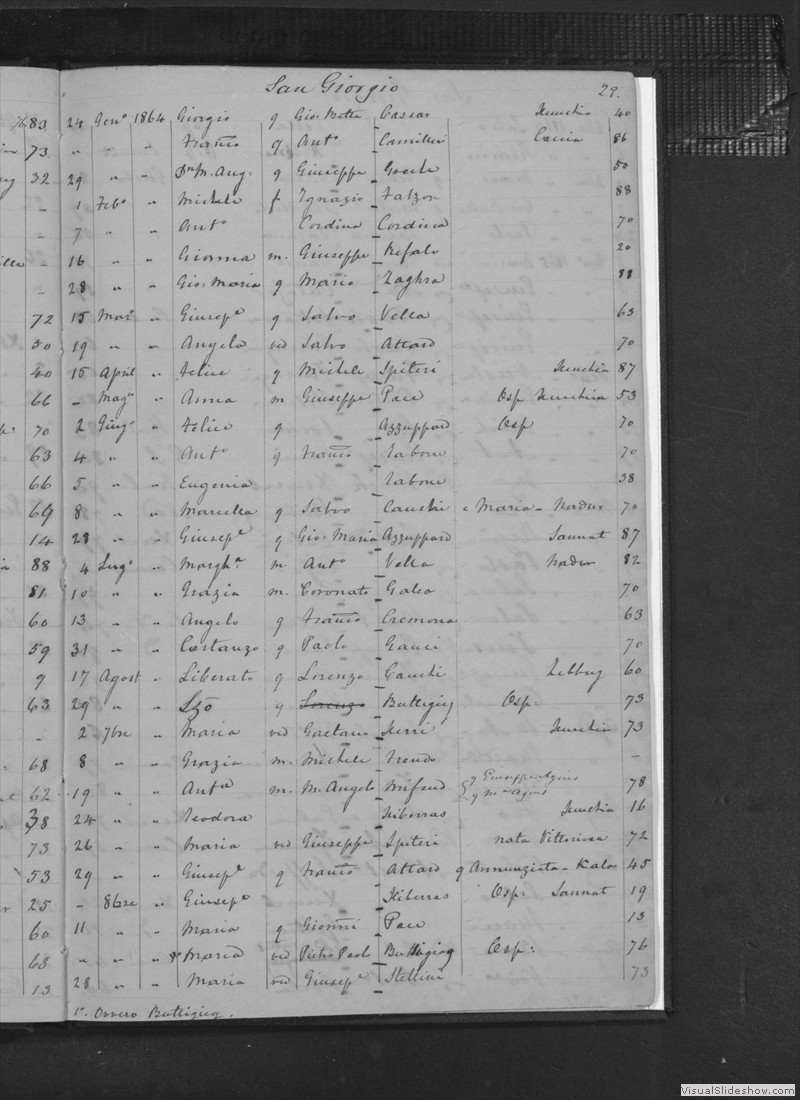 San Giorgio 29.
83 24 Gen° 1864 Giorgio g Gio. Batta Cassar Xeuchia 40
73 " " " Franco g Ant° Camilleri Caccia 86
32 29 " " Giuseppe 50
- 1 Feb° " Michele f Ignazio Falzon 88
- 7 " " Ant° Cordina Cordina 70
- 16 " " Giovma m. Giuseppe Refalo 20
- 28 " " Gio. Maria g Mario Zaghra 88
72 15 Mar° " Giusepe g Salvo Vella 63
50 19 " " Angela ved Salvo Attard 70
40 15 April " Felice g Michele Spiteri Xeuchia 87
66 - Mag° " Anna m Giuseppe Pace Osp Xeuchia 53
70 2 Giug° " Felice g Azzuppard Osp 70
63 4 " " Ant° g Franco Tabone 70
66 5 " " Eugenia Tabone 38
69 8 " " g Salvo Cauchi e Maria - Nadur 70
14 28 " " Giusepe g Gio: Maria Azzuppard Sannat 87
88 4 Lug° " Margha m Ant° Vella Nadur 82
81 10 " " Grazia m. Coronato Galea 70
60 13 " " Angelo g Franco Cremona 63
59 31 " " Costanzo g Paolo Gauci 70
9 17 Agost " Liberato g Lorenzo Cauchi Zebbug 60
63 29 " " Lzo g Lorenzo Buttigieg Osp: 73
- 2 7bre " Maria ved Gaetano Xerri Xeuchia 73
68 8 " " Grazia m. Michele -
62 19 " " Anta m. M. Angelo Mifsud g Giuseppe Agius g Ma Agius 78
38 24 " " Teodora Xiberras Xeuchia 16
73 26 " " Maria ved Giuseppe Spiteri nata Vittoriosa 72
53 29 " " Giusepe g Franco Attard g Annunziata - Kala 45
25 - 8bre " Giusepe Xiberras Osp: Sannat 19
60 11 " " Maria g Gionni Pace 13
68 " " " Maria ved Pietro Paolo Buttigieg Osp: 76
13 28 " " Maria ved Giusepe Stellini 73
1°. Ovvero Buttigieg.
VisualSlideshow.com